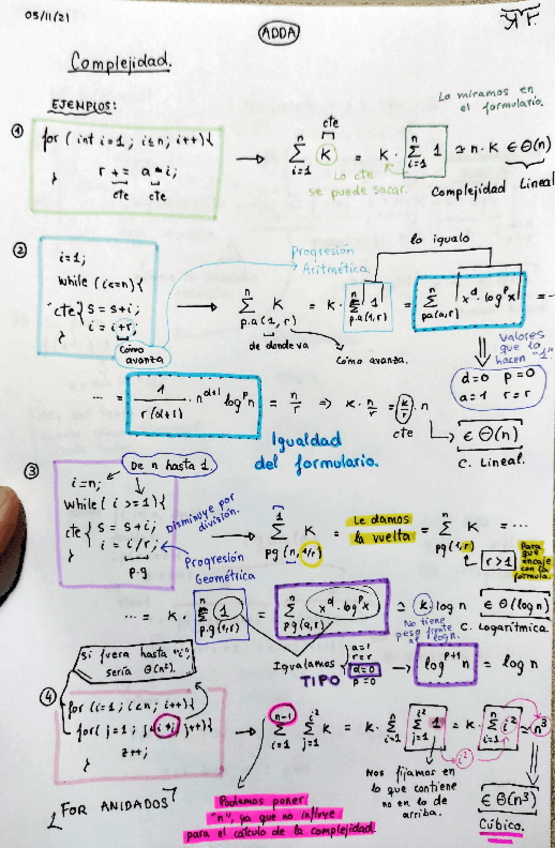 05/11/21
ADDA
Complejidad.
EJEMPLOS:
Lo miramos en
el formulario.
① for (int i=1; i≤n; i++){
r += a*i;
cte cte
}
→ n Σ i=1 K cte = K · n Σ i=1 1 ≃ n·K ∈ Θ(n)
Lo cte
se puede sacar.
Complejidad Lineal
② i=1;
while (i<=n){
cte { s = s+i;
i = i+r;
}
Cómo
avanza
Progresión
Aritmética.
lo igualo
→ n Σ p.a(1,r) K = K · n Σ p.a(1,r) 1 = n Σ p.a(a,r) x^d · log^p x = ...
de donde va
Cómo avanza.
Valores
que lo
hacen "1"
d=0 p=0
a=1 r=r
... = 1 / r(d+1) · n^(d+1) log^p n = n/r ⇒ K · n/r = k/r · n
cte
∈ Θ(n)
C. Lineal.
Igualdad
del formulario.
③ De n hasta 1.
i=n;
while (i >= 1){
cte { s = s+i;
i = i/r;
}
p.g
Disminuye por
división.
Progresión
Geométrica
→ 1 Σ pg(n,1/r) K = Le damos
la vuelta = n Σ pg(1,r) K = ...
r>1
Para
que
encaje
con la
fórmula.
... = K · n Σ p.g(1,r) 1 = n Σ p.g(a,r) x^d · log^p x ≃ K log n ∈ Θ(log n)
No tiene
peso frente
al log n.
C. Logarítmica.
Igualamos
TIPO
a=1
r=r
d=0
p=0
→ log^(p+1) n = log n
Si fuera hasta "i",
sería Θ(n²).
④ for (i=1; i<n; i++){
for (j=1; j<i*i; j++){
z++;
}
→ n-1 Σ i=1 i² Σ j=1 K = K · Σ i=1 i² Σ j=1 1 = K · n Σ i=1 i² ≃ n³
i²
Nos fijamos en
lo que contiene
no en lo de
arriba.
∈ Θ(n³)
Cúbico.
FOR ANIDADOS
Podemos poner
"n", ya que no influye
para el cálculo de la complejidad.